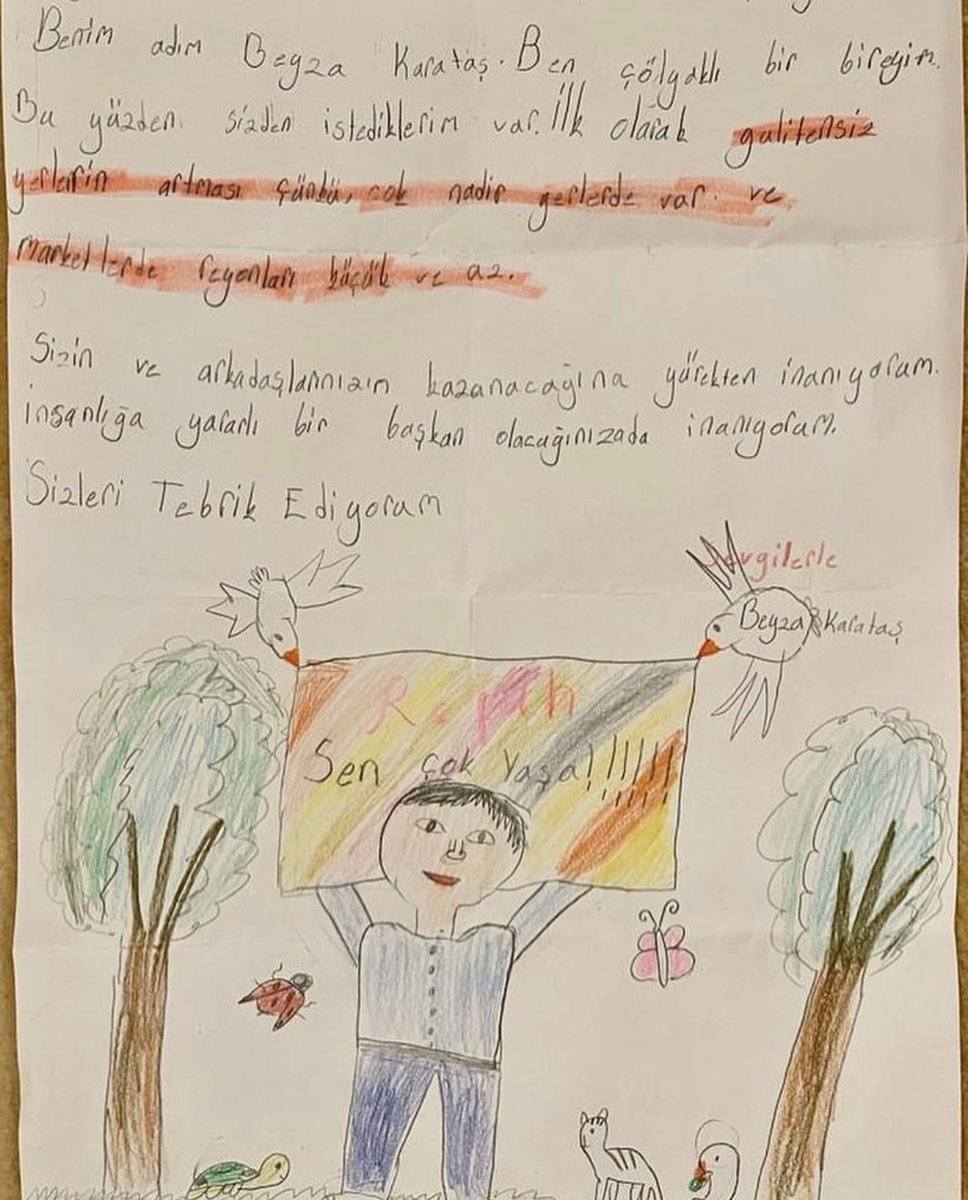 Benim adım Beyza Karataş. Ben çölyaklı bir bireyim.
Bu yüzden sizden istediklerim var. İlk olarak gulitensiz
yerlerin artması çünkü, çok nadir yerlerde var. ve
marketlerde reyonları küçük ve az.
Sizin ve arkadaşlarınızın kazanacağına yürekten inanıyorum.
insanlığa yararlı bir başkan olacağınızada inanıyorum.
Sizleri Tebrik Ediyorum
Sevgilerle
Beyza Karataş
Sen çok Yaşa!!!!!!